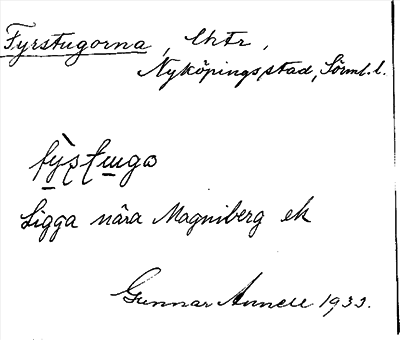 Fyrstugorna, lktr,
Nyköpings stad, Sörml. l.
fy̠ʂt̠u̠ga
Ligga nära Magniberg ek
Gunnar Annell 1933.